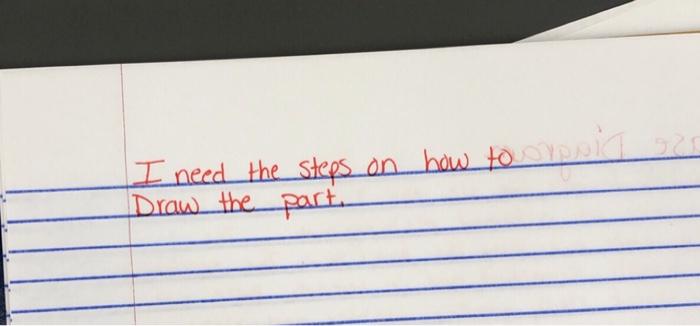 I need the steps on how to
Draw the part.